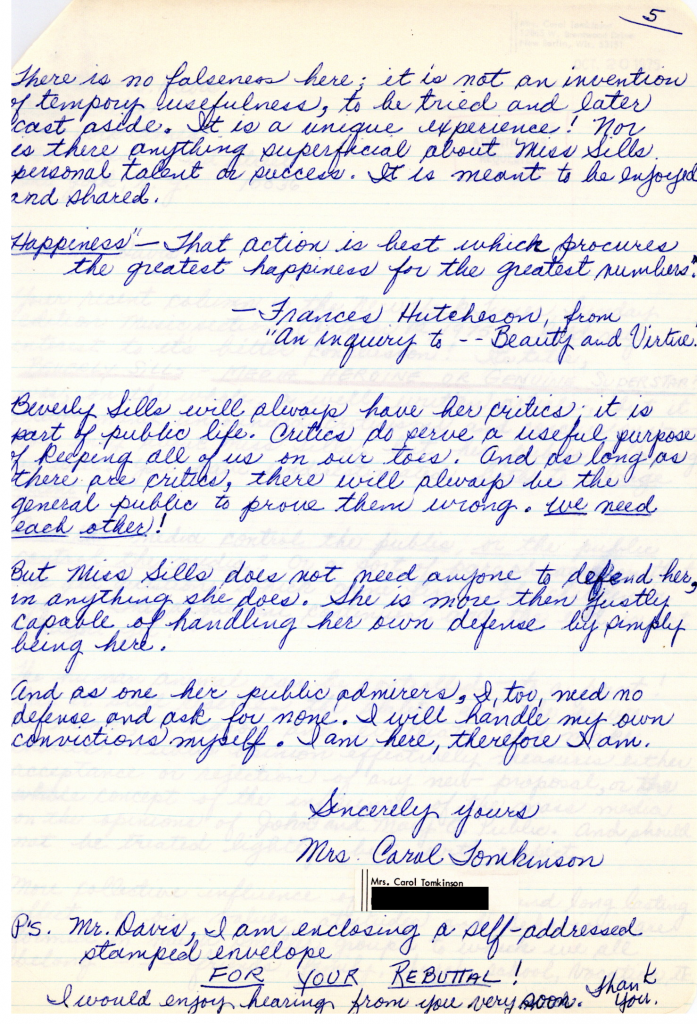 5
There is no falseness here; it is not an invention
of tempory usefulness, to be tried and later
cast aside. It is a unique experience! Nor
is there anything superficial about Miss Sills
personal talent or success. It is meant to be enjoyed
and shared.
Happiness" — That action is best which procures
the greatest happiness for the greatest numbers."
— Frances Hutcheson, from
"An inquiry to -- Beauty and Virtue.
Beverly Sills will always have her critics; it is
part of public life. Critics do serve a useful purpose
of keeping all of us on our toes. And as long as
there are critics, there will always be the
general public to prove them wrong. we need
each other!
But Miss Sills does not need anyone to defend her,
in anything she does. She is more then justly
capable of handling her own defense by simply
being here.
And as one her public admirers, I, too, need no
defense and ask for none. I will handle my own
convictions myself. I am here, therefore I am.
Sincerely yours
Mrs. Carol Tomkinson
Mrs. Carol Tomkinson
P's. Mr. Davis, I am enclosing a self-addressed
stamped envelope
FOR YOUR REBUTTAL!
I would enjoy hearing from you very soon. Thank
you.